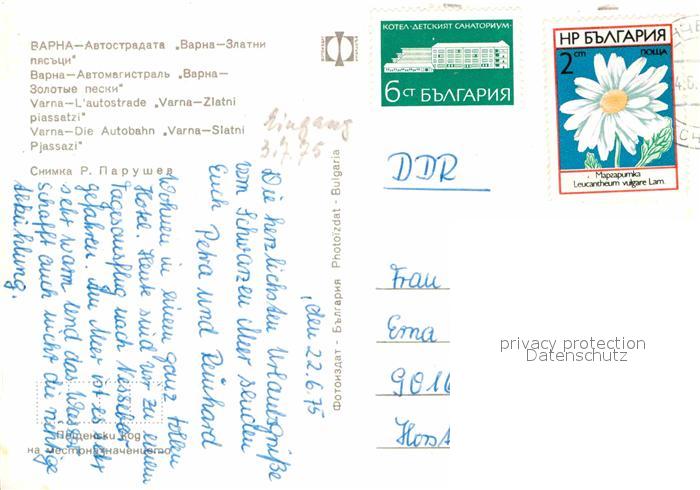 ВАРНА—Автострадата „Варна-Златни
пясъци"
Варна—Автомагистраль „Варна—
Золотые пески"
Varna—L'autostrade „Varna—Zlatni
piassatzi"
Varna—Die Autobahn „Varna—Slatni
Pjassazi"
Снимка Р. Парушев
Eingang
3.7.75
, den 22.6.75
Die herzlichsten Urlaubsgrüße
vom Schwarzen Meer senden
Euch Petra und Reinhard
Wohnen in einem ganz tollen
Hotel. Heute sind wir zu einem
Tagesausflug nach Nessebar
gefahren. Am Meer ist es sehr
sehr warm und das Wasser
schafft auch nicht die richtige
Abkühlung.
Пощенски код
на местназначението
Фотоиздат - България Photoïzdat - Bulgaria
КОТЕЛ-ДЕТСКИЯТ САНАТОРИУМ
6 СТ БЪЛГАРИЯ
НР БЪЛГАРИЯ
2 ст ПОЩА
Маргаритка
Leucantheum vulgare Lam.
DDR
Frau
Erna
901
Horst
privacy protection
Datenschutz